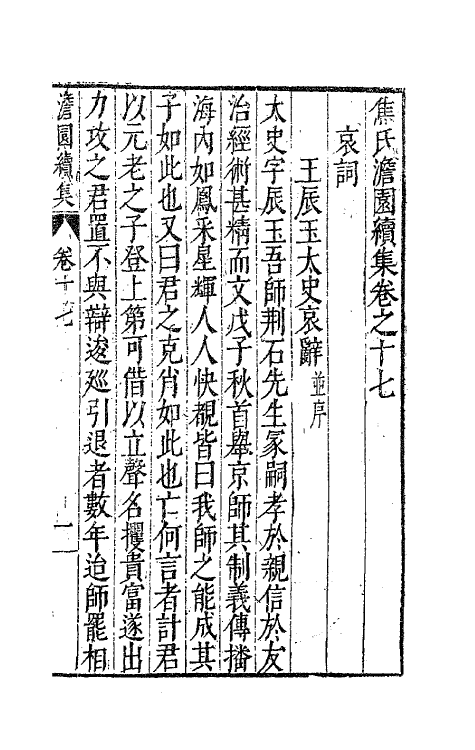 焦氏澹園續集卷之十七
哀詞
王辰玉太史哀辭並序
太史字辰玉吾師荆石先生冢嗣孝於親信於友
治經術甚精而文戊子秋首舉京師其制義傳播
海內如鳳采星輝人人快覩皆曰我師之能成其
子如此也又曰君之克肖如此也亡何言者計君
以元老之子登上第可借以立聲名攫貴富遂出
力攻之君置不與辯逡廵引退者數年迨師罷相
澹園續集
卷十七
一